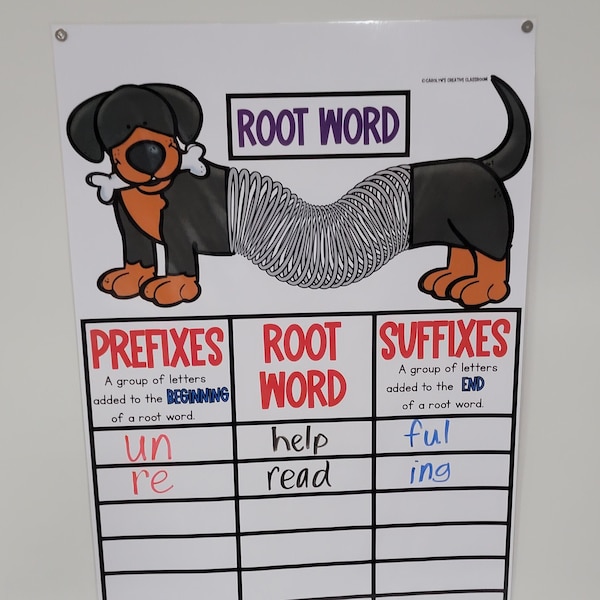 © CAROLYN'S CREATIVE CLASSROOM
ROOT WORD
PREFIXES
A group of letters
added to the BEGINNING
of a root word.
ROOT
WORD
SUFFIXES
A group of letters
added to the END
of a root word.
un help ful
re read ing